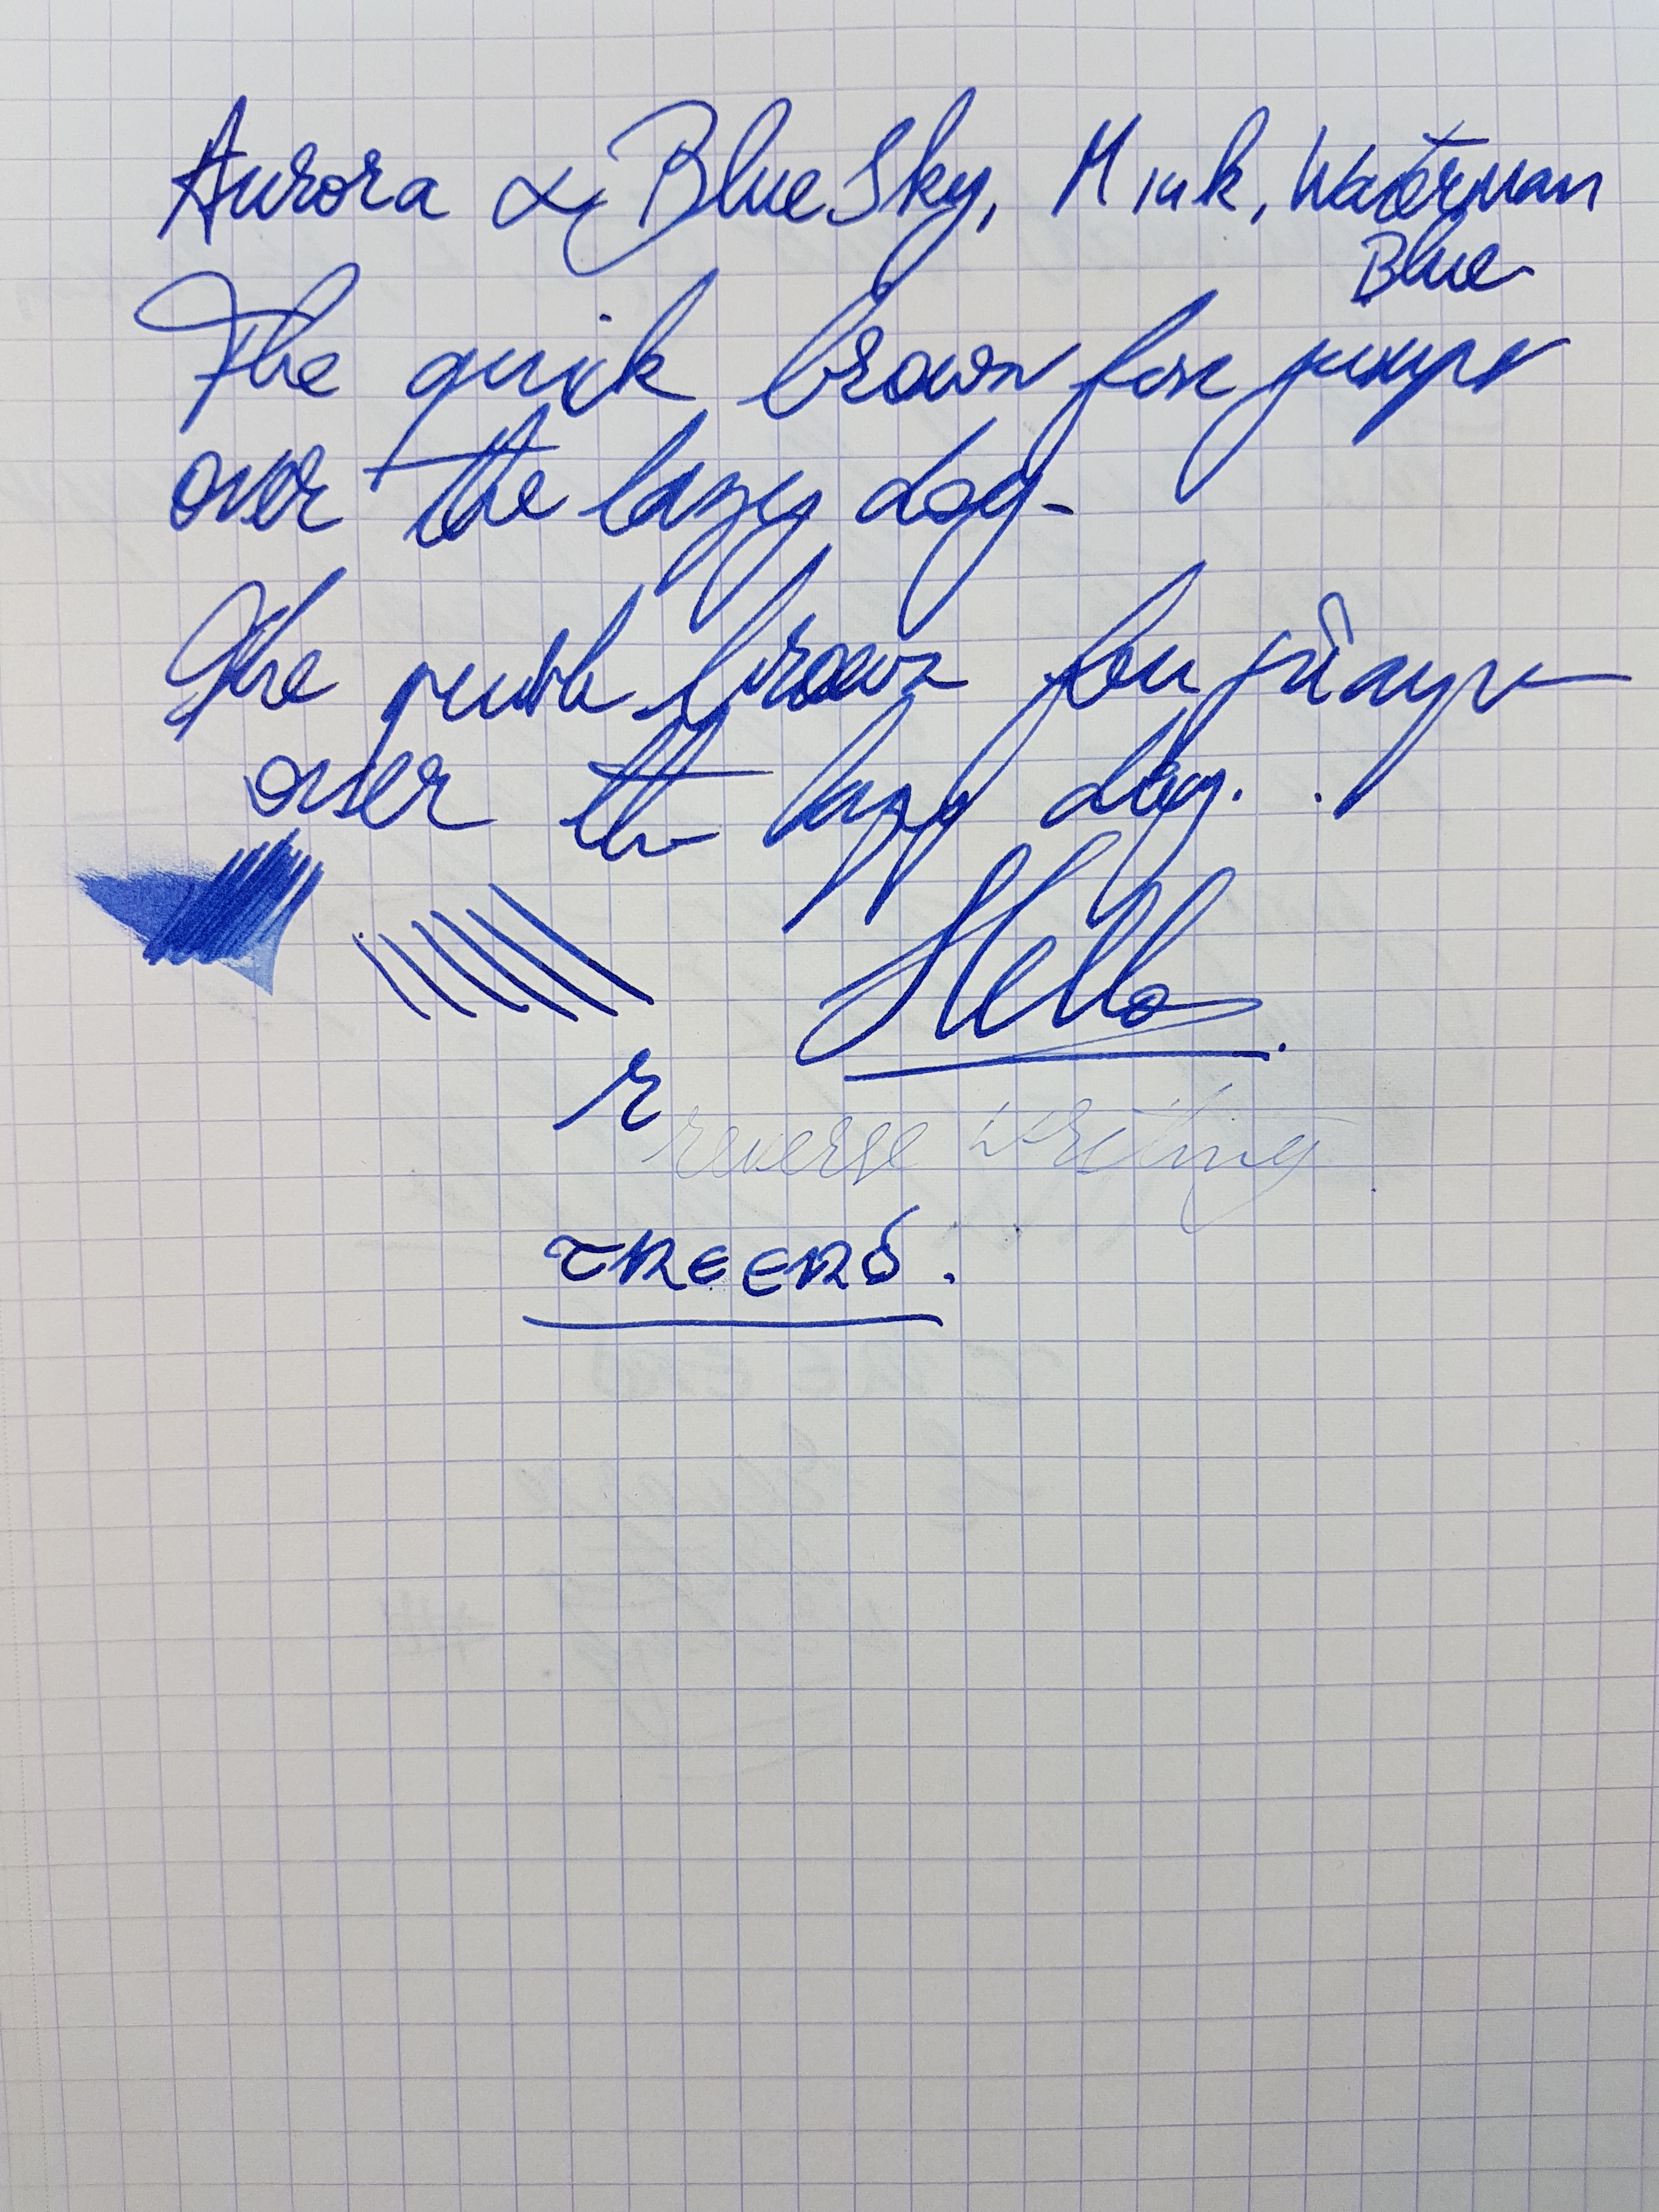 Aurora α Blue Sky, M ink, Waterman
Blue
The quick brown fox jumps
over the lazy dog-
The quick brown fox jumps
over the lazy dog. .
Hello.
r
reverse writing